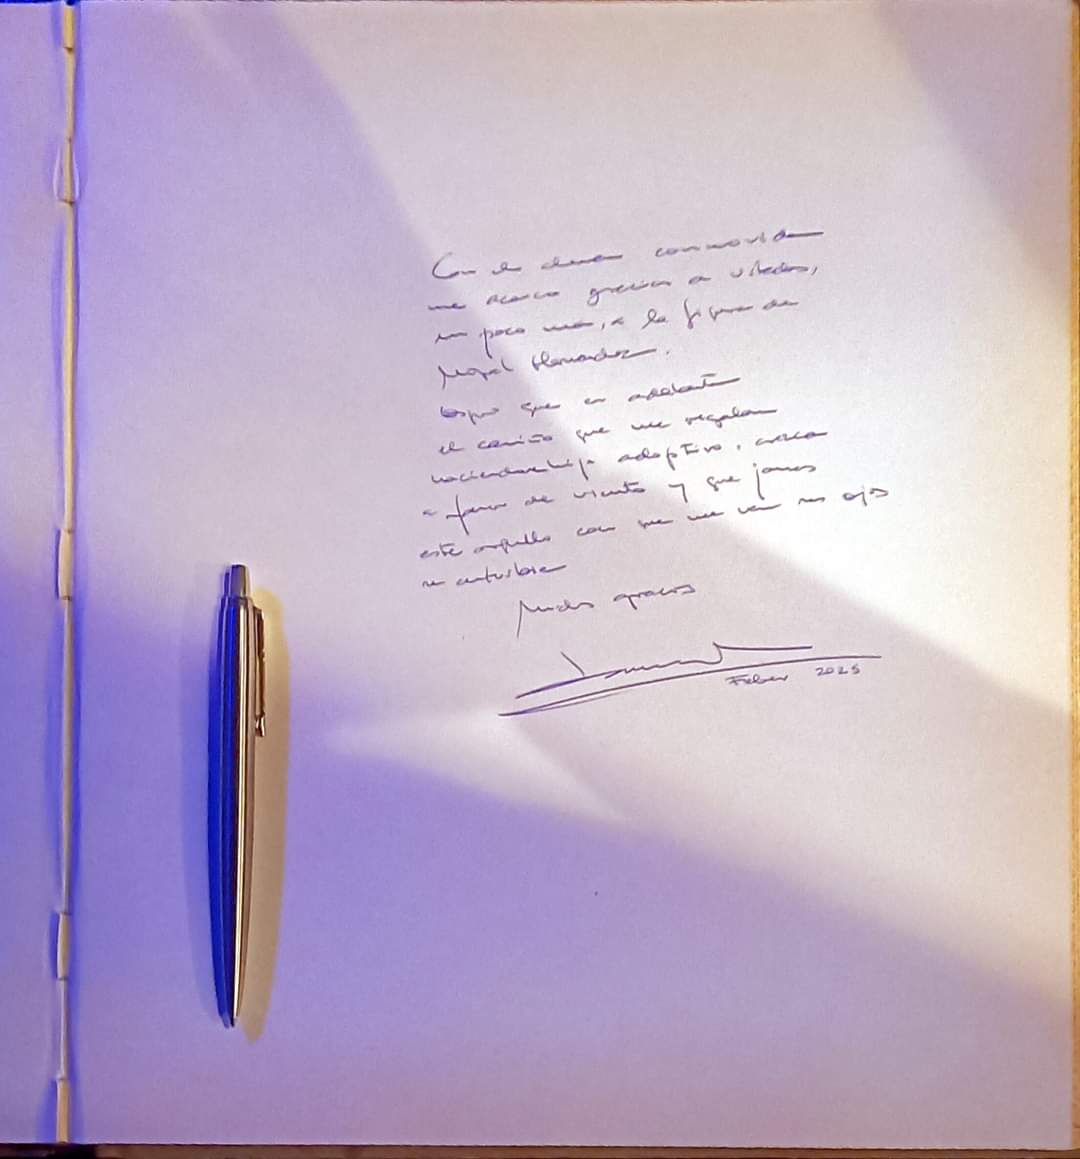 Con el alma conmovida
me acerco gracias a ustedes,
un poco más, a la figura de
Miguel Hernandez.
Espero que en adelante
el cariño que me regalan
haciendome hijo adoptivo, crezca
a favor de viento y que jamas
este orgullo con que me ven sus ojos
se enturbie
Muchas gracias
2025